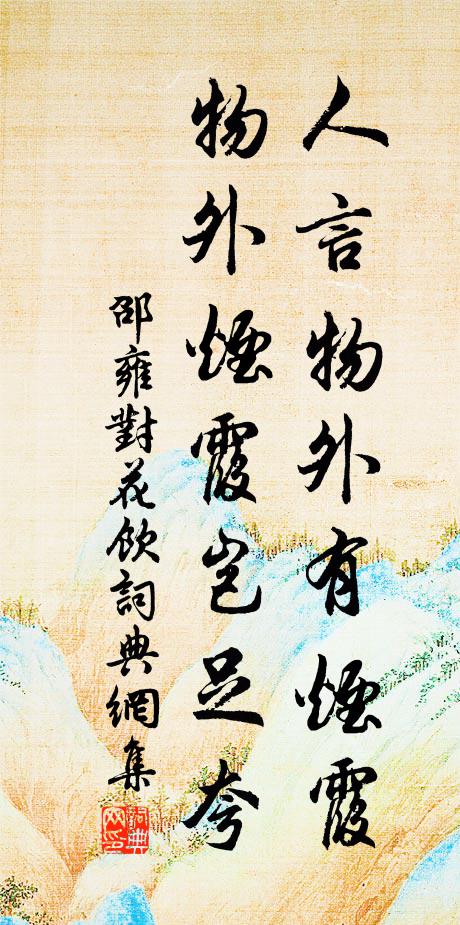 人言物外有煙霞
物外煙霞豈足夸
邵雍對花飲詞典網集
詞典網印